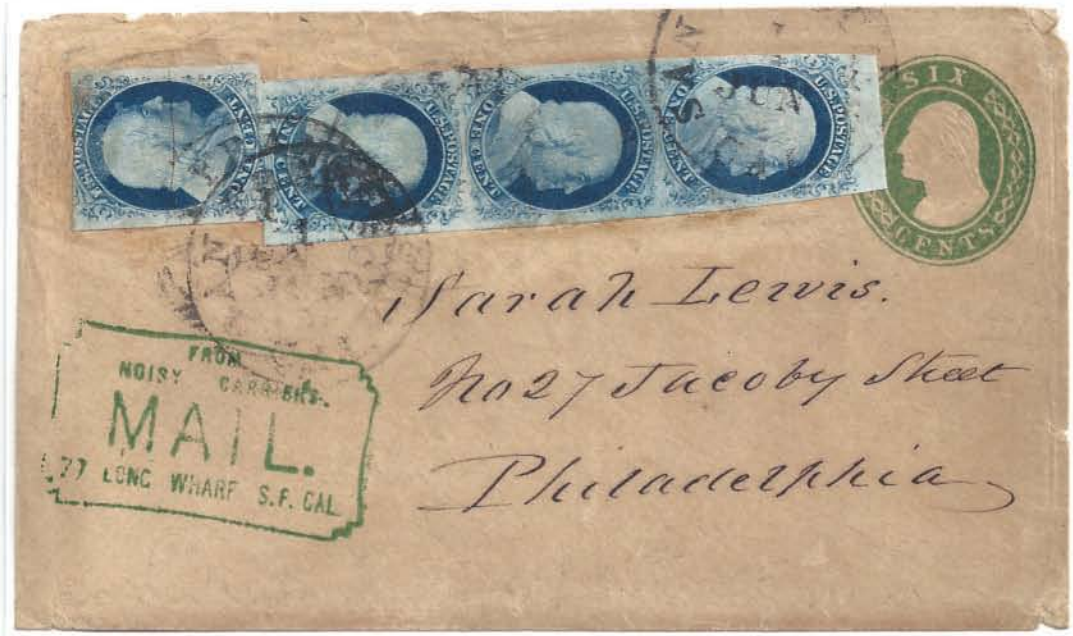 SIX
CENTS
U.S. POSTAGE
ONE CENT
U.S. POSTAGE
ONE CENT
U.S. POSTAGE
ONE CENT
U.S. POSTAGE
ONE CENT
SAN
JUN
CAL
Sarah Lewis.
No 27 Jacoby Street
Philadelphia
FROM
NOISY CARRIERS.
MAIL.
77 LONG WHARF S.F. CAL